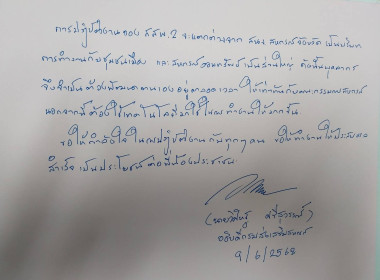 การปฏิบัติงานของ สสพ.2 จะแตกต่างจาก สนง. สหกรณ์จังหวัด เป็นบริบท
การทำงานกับชุมชนเมือง และ สหกรณ์ออมทรัพย์ เป็นส่วนใหญ่ ดังนั้นบุคลากร
จึงจำเป็นต้องพัฒนาตนเองอยู่ตลอดเวลา ให้เท่าทันกับ
นอกจากนี้ต้องใช้เทคโนโลยีมาใช้ในการทำงานให้มากขึ้น
ขอให้กำลังใจในการปฏิบัติงานกับทุกๆคน ขอให้ทำงานให้ประสบผล
สำเร็จ เป็นประโยชน์ ต่อพี่น้องประชาชน
(นายวิศิษฐ์ ศรีสุวรรณ์)
อธิบดีกรมส่งเสริมสหกรณ์
9/6/2568